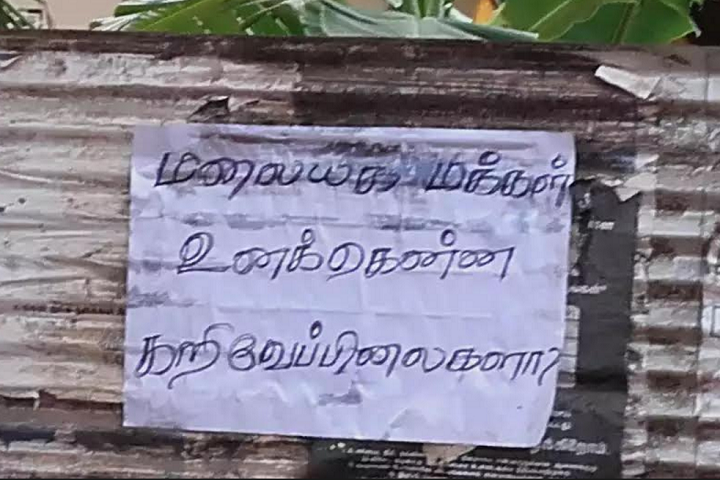 மலையக மக்கள்
உனக்கென்ன
கறிவேப்பிலைகளா?